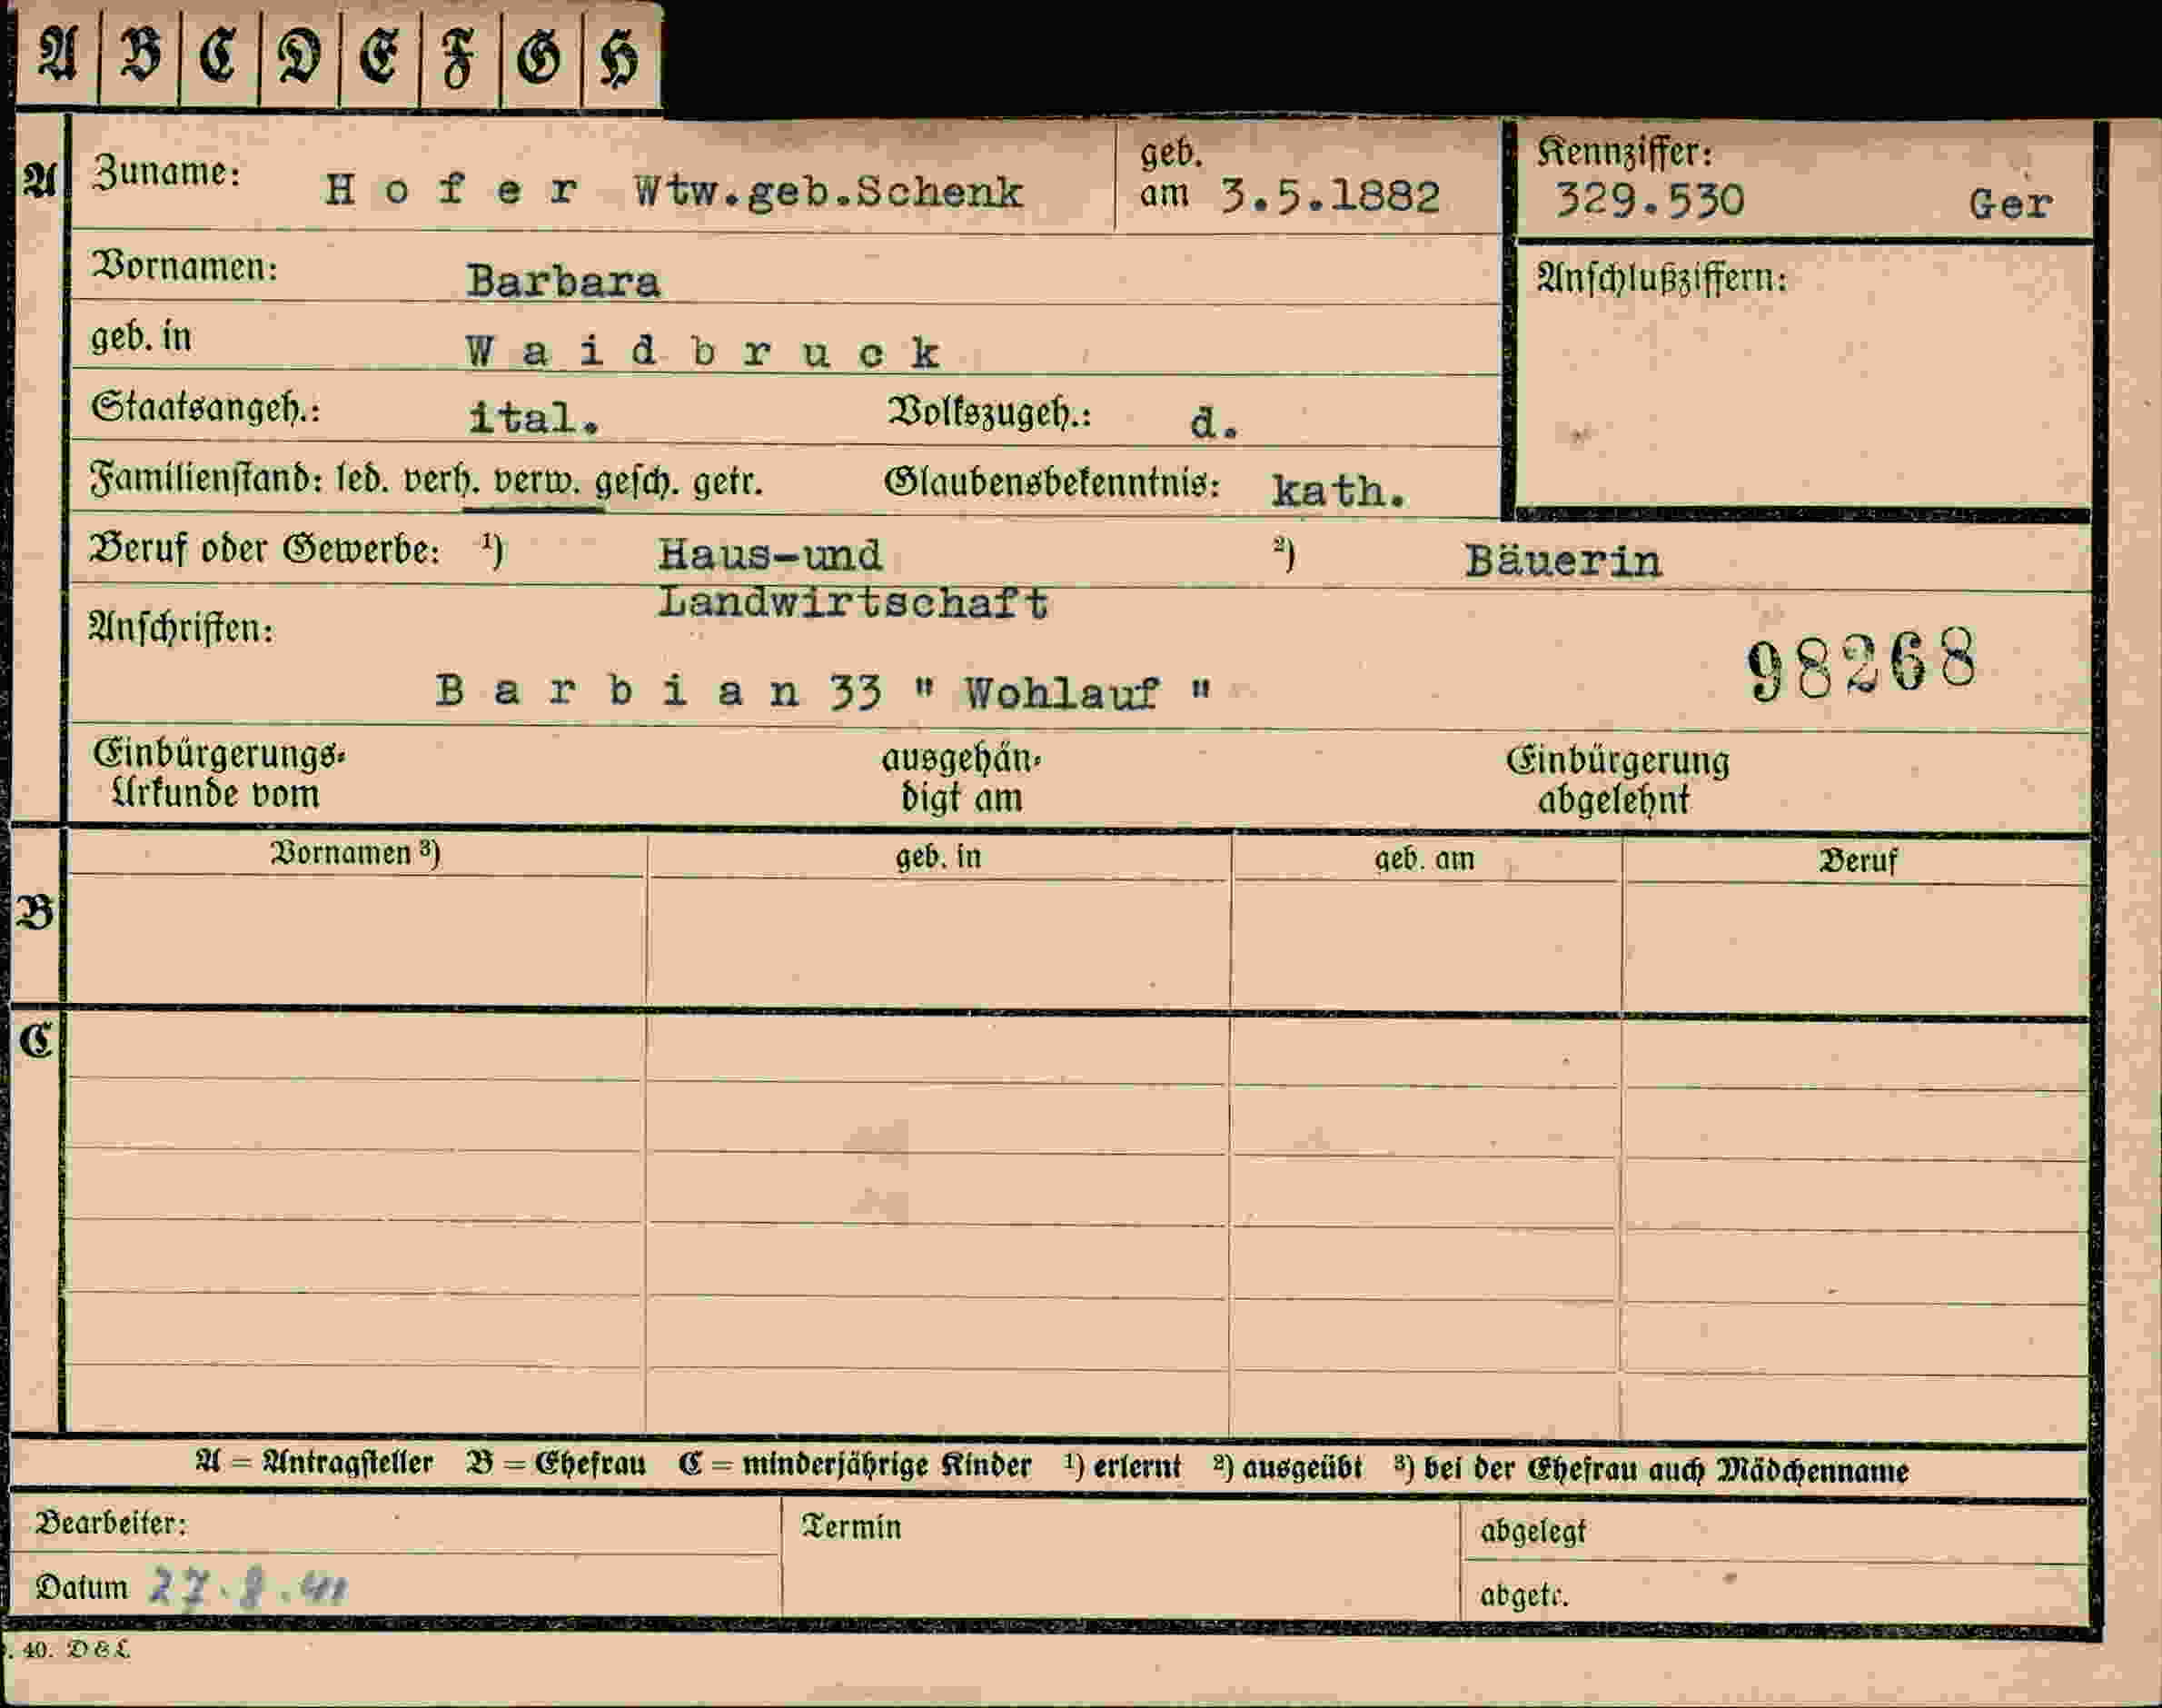 A B C D E F G H
A Zuname: H o f e r Wtw.geb.Schenk geb. am 3.5.1882 Kennziffer: 329.530 Ger
Vornamen: Barbara Anschlußziffern:
geb. in W a i d b r u c k
Staatsangeh.: ital. Volkszugeh.: d.
Familienstand: led. verh. verw. gesch. getr. Glaubensbekenntnis: kath.
Beruf oder Gewerbe: ¹) Haus-und ²) Bäuerin
Landwirtschaft
Anschriften:
98268
B a r b i a n 33 " Wohlauf "
Einbürgerungs- ausgehän- Einbürgerung
Urkunde vom digt am abgelehnt
Vornamen ³) geb. in geb. am Beruf
B
C
A = Antragsteller B = Ehefrau C = minderjährige Kinder ¹) erlernt ²) ausgeübt ³) bei der Ehefrau auch Mädchenname
Bearbeiter: Termin abgelegt
Datum 27.8.41 abgetr.
. 40. D & L